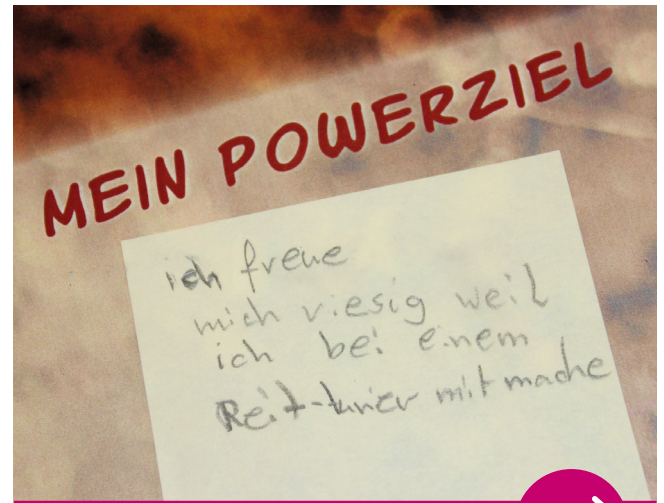 MEIN POWERZIEL
ich freue
mich riesig weil
ich bei einem
Reit-tunier mitmache